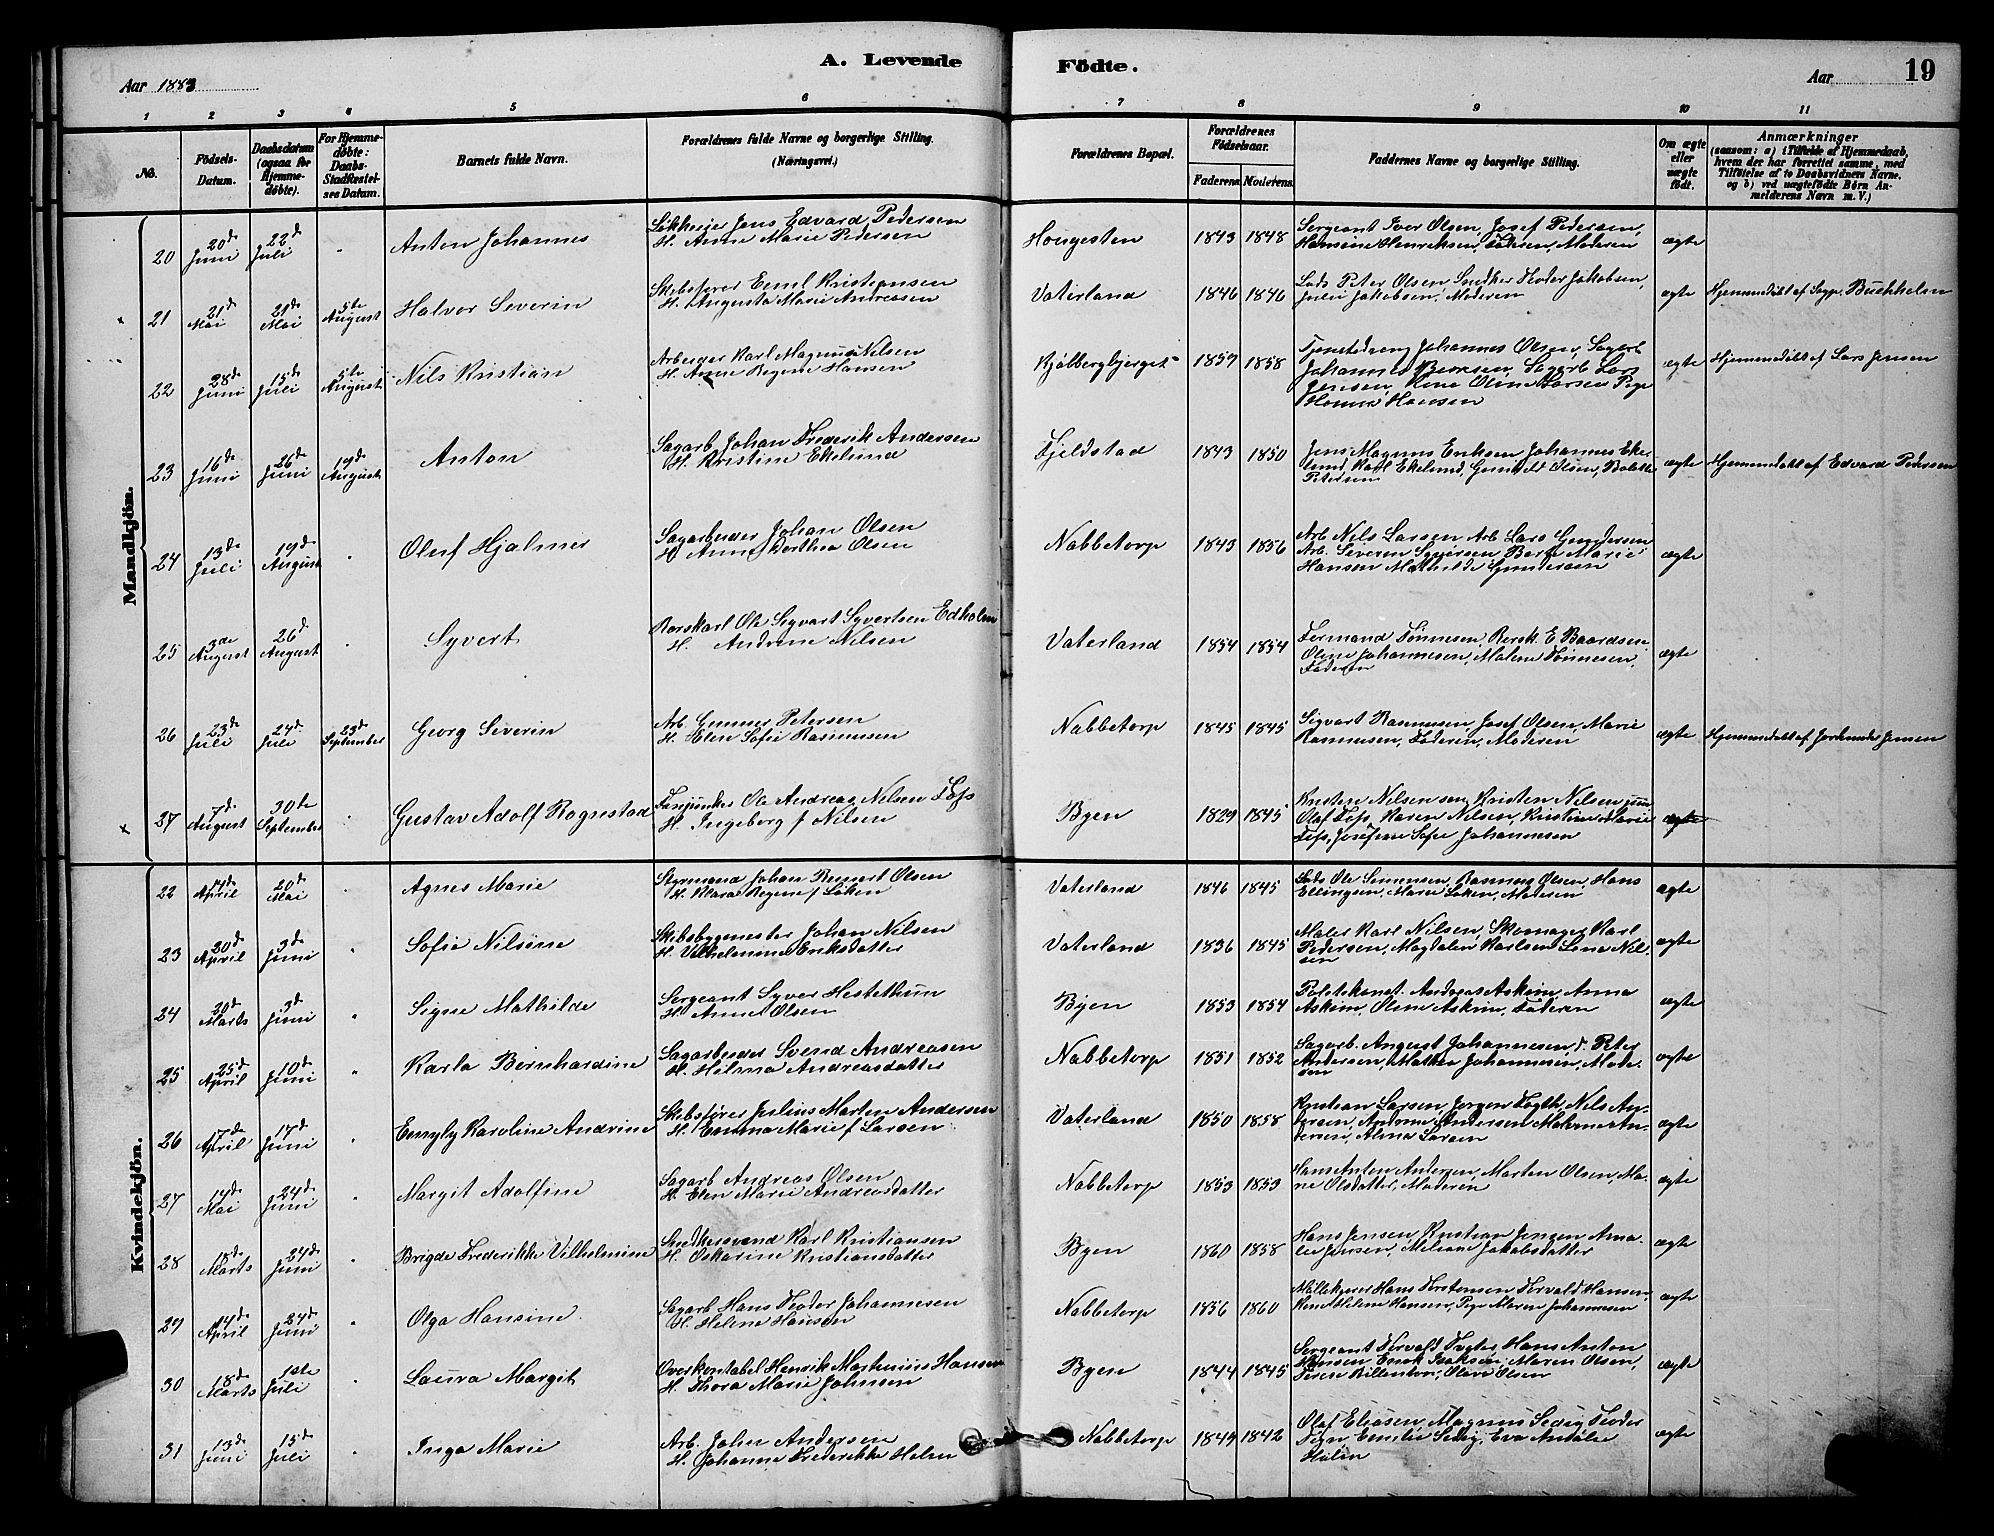 A. Levende Födte.
Aar 1883
Aar
19
1 2 3 4 5 6 7 8 9 10 11
No.
Födsels-Datum.
Daabsdatum (ogsaa for Hjemmedöbte).
For Hjemmedöbte: Daabs Stadfæstelses Datum.
Barnets fulde Navn.
Forældrenes fulde Navne og borgerlige Stilling. (Næringsvei.)
Forældrenes Bopæl.
Forældrenes Födselsaar.
Faderens Moderens
Faddernes Navne og borgerlige Stilling.
Om ægte eller uægte födt.
Anmærkninger (saasom: a) i Tilfælde af Hjemmedaab, hvem der har forrettet samme, med Tilföielse af to Daabsvidners Navne, og b) ved uægtefödte Börn Anmelderens Navn m. V.)
Mandkjön.
20 20de Juni 22de Juli Anton Johannes
Jens Edvard Pedersen
H. Anne Marie Pedersen
Hougesten 1843 1848
Sergeant Iver Olsen, Josef Pedersen,
Hansine Henriksen, Faderen, Moderen
ægte
21 21de Mai 21de Mai 5te August Halvor Severin
Skibsfører Emil Kristiansen
H. Augusta Marie Andreasen
Vaterland 1846 1846
Lods Peter Olsen, Snedker Theodor Jakobsen,
Julie Jakobsen, Moderen
ægte Hjemmedøbt af Sogp. Buchholm
22 28de Juni 15de Juli 5te August Nils Kristian
Arbeider Karl Magnus Nilsen
H. Anne Regine Hansen
Kjølbergbjerget 1857 1858
Tjenestedreng Johannes Olsen, Sagarb
Johannes Berntsen, Sagarb Lars
Jensen, Oline Larsen Pige
Hansen
ægte Hjemmedøbt af Lars Jensen
23 16de Juni 26de Juni 19de August Anton
Sagarb Johan Frederik Andersen
H. Kristine Ekelund
Fjeldstad 1843 1850
Jens Magnus Eriksen, Johannes Eke-
lund, Karl Ekelund, Gunhild Olsen, Bolette
Petersen
ægte Hjemmedøbt af Edvard Pedersen
24 13de Juli 19de August Oluf Hjalmer
Sagarbeider Johan Olsen
H. Anne Dorthea Olsen
Nabbetorp 1843 1856
Arb Nils Larsen Arb Lars Gundersen
Arb. Severin Syversen Berte Marie
Hansen Mathilde Gundersen
ægte
25 3de August 26de August Syvert
Rorskarl Ole Sigvart Syvertsen Edholm
H. Andrine Nilsen
Vaterland 1854 1854
Fermand Tønnesen, Rorsk. E Baardsen
Oline Johannesen, Malene Tønnesen,
Faderen
ægte
26 23de Juli 24de Juli 23de September Georg Severin
Arb. Gunner Petersen
H. Elen Sofie Rasmusen
Nabbetorp 1845 1845
Sigvart Rasmusen, Josef Olsen, Marie
Rasmusen, Faderen, Moderen
ægte Hjemmedøbt af Jordemoder Jensen
27 7de August 30te September Gustav Adolf Rognstad
Ole Andreas Nilsen Foss
H. Ingeborg f Nilsen
Byen 1829 1845
Kristen Nilsen sen, Kristen Nilsen jun
Olaf Foss, Karen Nilsen, Kristine Marie
Foss, Josefine Sofie Johannesen
ægte
Kvindekjön.
22 April 20de Mai Agnes Marie
Styrmand Johan Bernert Olsen
H. Klara Regine f Løken
Vaterland 1846 1845
Lods Ole Simensen, Rasmus Olsen, Hans
Ellingsen, Marie Løken, Moderen
ægte
23 20de April 3de Juni Sofie Nilsine
Skibsbygmester Johan Nilsen
H. Vilhelmine Eriksdatter
Vaterland 1836 1845
Maler Karl Nilsen, Skomager Karl
Pedersen, Magdalen Karlsen Lena Nil-
sen
ægte
24 20de Marts 3de Juni Signe Mathilde
Sergeant Syver Hestethun
H. Anne Olsen
Byen 1853 1854
Politikonst. Andreas Askim, Anna
Askim, Oline Askim, Faderen
ægte
25 25de April 10de Juni Karla Bernhardine
Sagarbeider Svend Andreasen
H. Hilma Andreasdatter
Nabbetorp 1851 1852
Sagarb. August Johannesen, Peter
Andersen, Mathea Johannesen, Mode-
ren
ægte
26 17de April 17de Juni Emyly Karoline Andrine
Skibsfører Julius Marten Andersen
H. Emma Marie f Larsen
Vaterland 1850 1858
Kristian Larsen, Jørgen Fogth, Nils An-
dersen, Andrine Andersen Malvine An-
dersen, Alma Larsen
ægte
27 14de Mai 24de Juni Margit Adolfine
Sagarb Andreas Olsen
H. Elen Marie Andreasdatter
Nabbetorp 1853 1853
Hans Anton Andersen, Marten Olsen, Ma-
rie Olsdatter, Moderen
ægte
28 18de Marts 24de Juni Brigde Frederikke Vilhelmine
Snedkersvend Karl Kristiansen
H. Oskarine Kristiansdatter
Byen 1860 1858
Hans Jensen, Kristian Jensen Ama-
lie Jensen, Miliane Jakobsdatter
ægte
29 14de April 24de Juni Olga Hansine
Sagarb Hans Teodor Johannesen
H. Helene Hansen
Nabbetorp 1856 1860
Møllekjører Hans Torstensen Torvald Hansen,
Kone Helene Hansen, Pige Maren Johannesen
ægte
30 18de Marts 1ste Juli Laura Margit
Overkonstabel Henrik Marthinius Hansen
H. Thora Marie Johnsen
Byen 1844 1845
Sergeant Torvald Fogter Hans Anton
Hansen Enok Isaksen, Maren Olsen,
Terese Billenton, Olava Olsen
ægte
31 13de Juni 15de Juli Inga Marie
Arb. John Andersen
H. Johanne Frederikke Helen
Nabbetorp 1849 1842
Olaf Eliasen, Magnus Sedig Teodor
Emilie Sedig, Eva
Helen
ægte